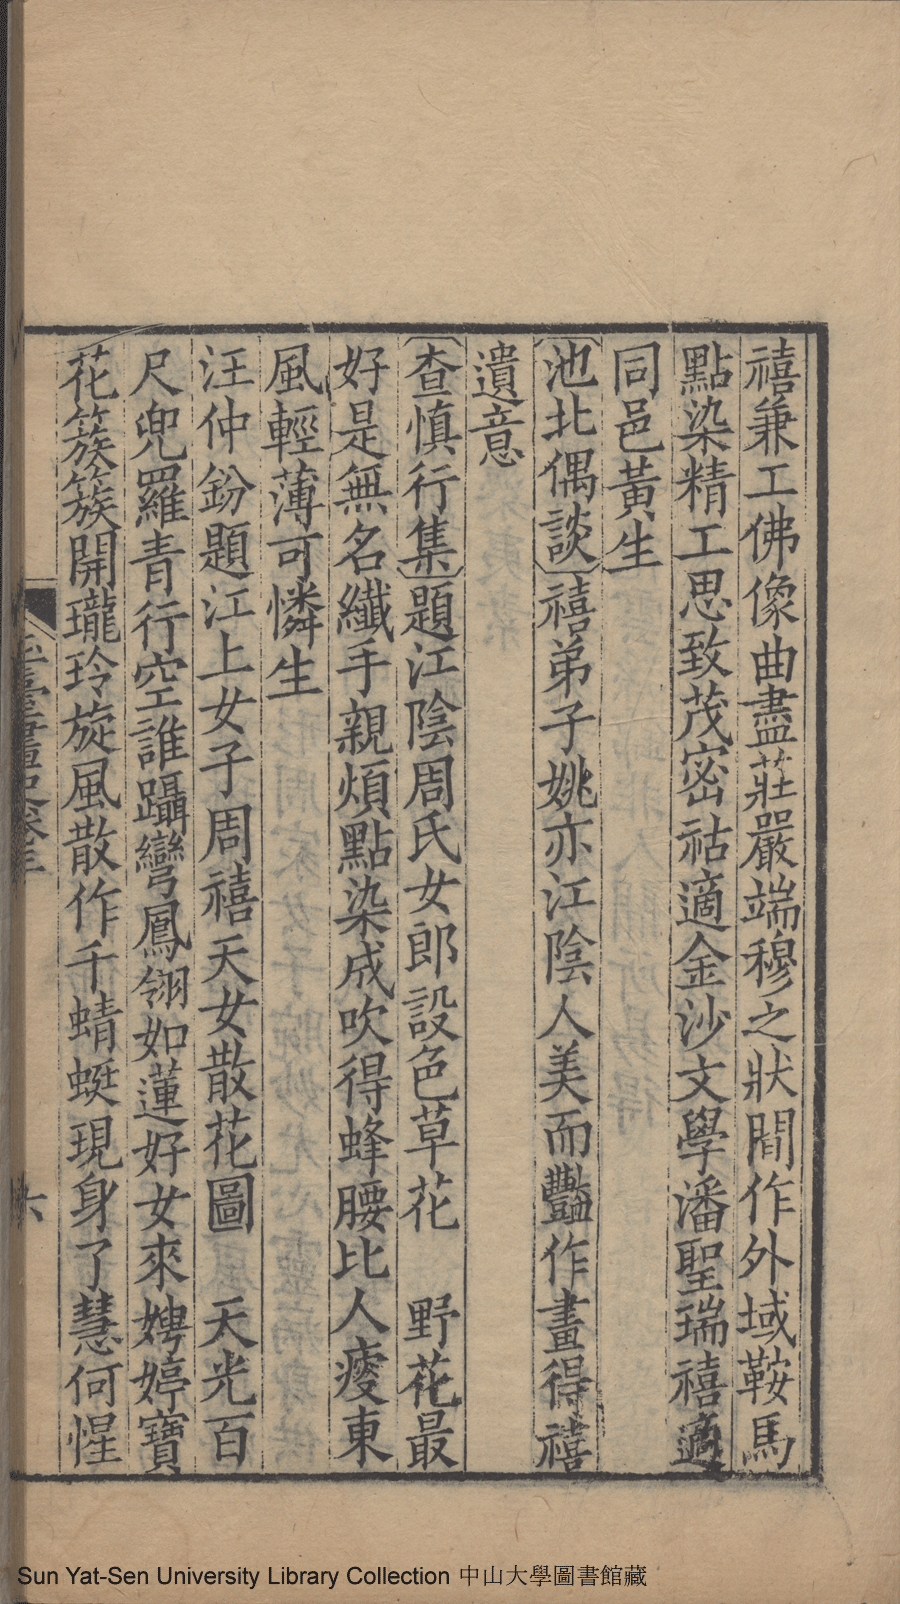 禧兼工佛像曲盡莊嚴端穆之狀間作外域鞍馬
點染精工思致茂密祜適金沙文學潘聖瑞禧適
同邑黃生
〔池北偶談〕禧弟子姚亦江陰人美而豔作畫得禧
遺意
〔查慎行集〕題江陰周氏女郎設色草花　野花最
好是無名纖手親煩點染成吹得蜂腰比人瘦東
風輕薄可憐生
汪仲鈖題江上女子周禧天女散花圖　天光百
尺兜羅青行空誰躡彎鳳翎如蓮好女來娉婷寶
花簇簇開瓏玲旋風散作千蜻蜓現身了慧何惺
玉臺畫史卷三
六
Sun Yat-Sen University Library Collection 中山大學圖書館藏